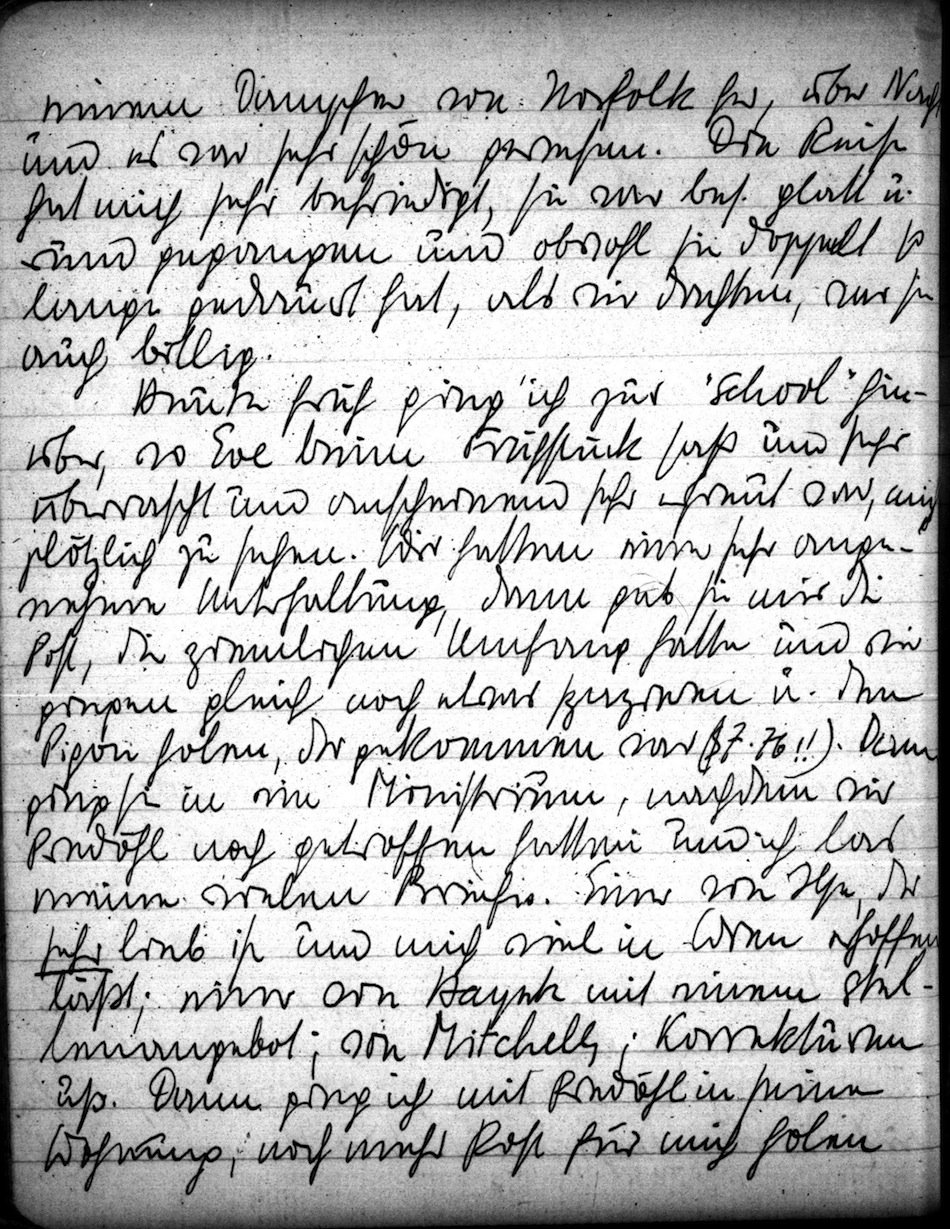 einem Dampfer von Norfolk her, über Nacht,
und es war sehr schön gewesen. Die Reise
hat mich sehr befriedigt, sie war bes. glatt u.
rund gegangen und obwohl sie doppelt so
lange gedauert hat, als wir dachten, war sie
auch billig.
Heute früh ging ich zur "School" hin-
über, wo Eve beim Frühstück saß und sehr
überrascht und anscheinend sehr erfreut war, mich
plötzlich zu sehen. Wir hatten eine sehr ange-
nehme Unterhaltung, dann gab sie mir die
Post, die ziemlichen Umfang hatte und wir
gingen gleich noch etwas spazieren u. den
holen, der gekommen war ($7.76!!). Dann
ging sie in ein Ministerium, nachdem wir
Predöhl noch getroffen hatten und ich las
meine vielen Briefe. Einer von Ilse, der
sehr lieb ist und mich viel in Wien erhoffen
läßt; einer von Hayek mit einem Stel-
lenangebot; von Mitchell; Korrekturen
usf. Dann ging ich mit Predöhl in seine
Wohnung, noch mehr Post für mich holen